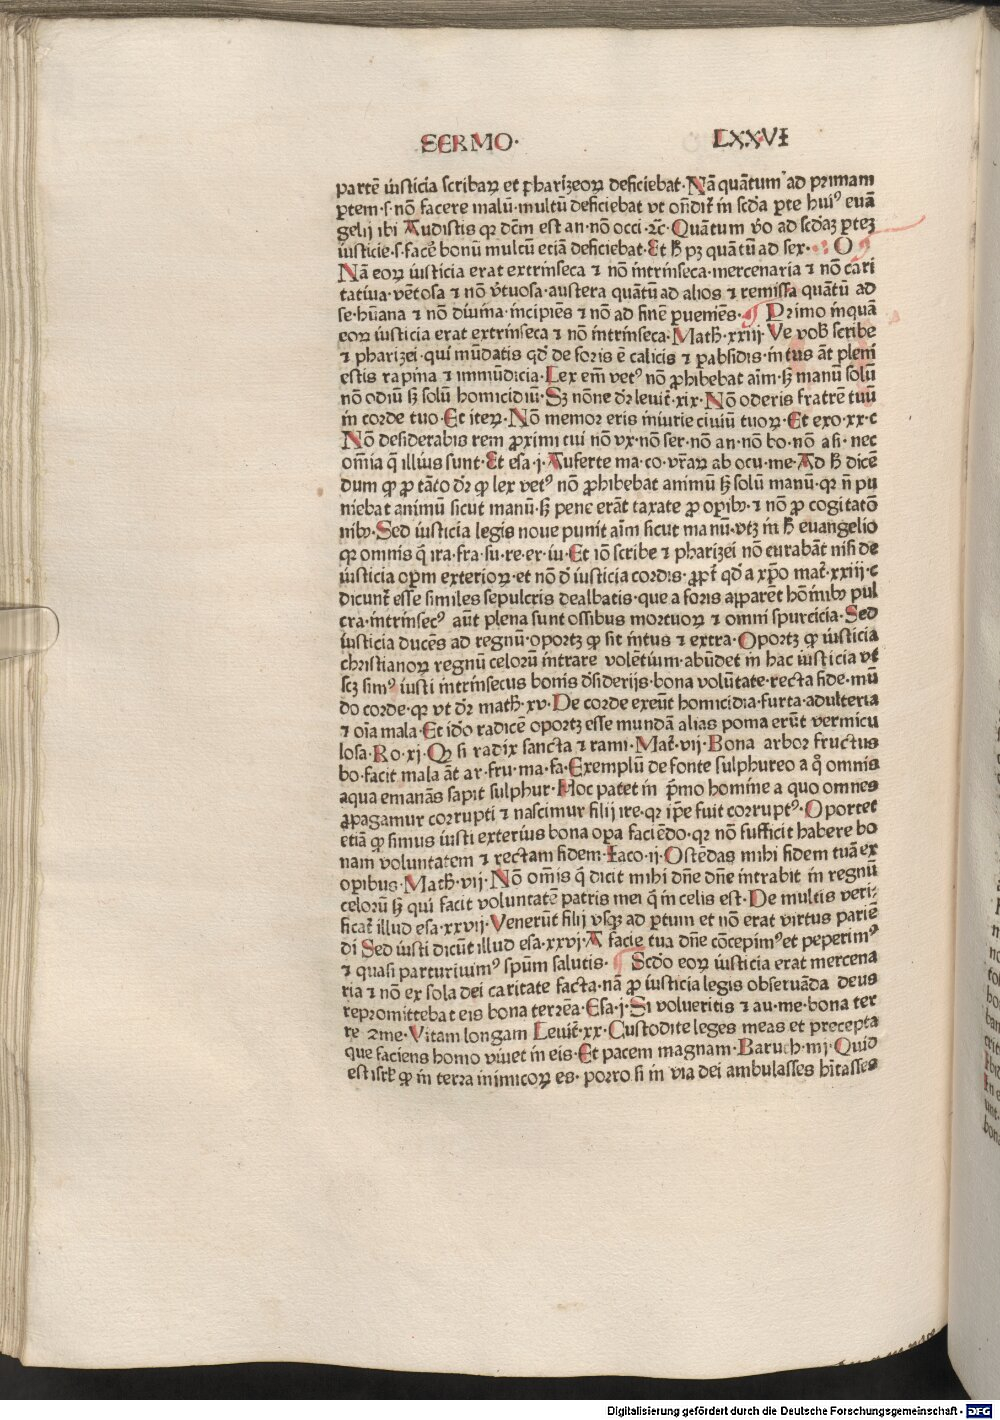 SERMO· LXXVI
partē iusticia scribaꝝ et pharizeoꝝ deficiebat·Nā quātum ad primam
ꝑtem·s·nō facere malū·multū deficiebat vt on̄dit̄ in sc̄da ꝑte hui⁹ euā
gelij ibi Audistis qꝛ dc̄m est an·nō occi·⁊c·Quātum v̄o ad sc̄daꝫ ꝑteꝫ
iusticie·s·facē bonū multū etiā deficiebat·Et ꝗ pꝫ quātū ad sex· O
Nā eoꝝ iusticia erat extrinseca ⁊ nō intrinseca·mercenaria ⁊ nō cari
tatiua·vētosa ⁊ nō v̄tuosa·austera quātū ad alios ⁊ remissa quātū ad
se·hūana ⁊ nō diuina·incipiēs ⁊ nō ad finē ꝑueniēs· Primo inquā
eoꝝ iusticia erat extrinseca ⁊ nō intrinseca·Math̄·xxiij·Ve vob̄ scribe
⁊ pharizei·qui mūdatis qd̄ de foris ē calicis ⁊ ꝑabsidis·intus āt pleni
estis rapina ⁊ immūdicia·Lex em̄ vet⁹ nō ꝓhibebat aīm·sꝫ manū solū
nō odiū sꝫ solū homicidiū·Sꝫ nōne dr̄ leuit̄·xix·Nō oderis fratrē tuū
in corde tuo·Et iteꝝ·Nō memor eris iniurie ciuiū tuoꝝ·Et exo·xx·c
Nō desiderabis rem ꝓximi tui nō vx·nō ser·nō an·nō bo·nō asi·nec
om̄ia q̄ illius sunt·Et esa·j·Auferte ma·co·vr̄aꝝ ab ocu·me·Ad h̄ dicē
dum ꝙ ꝓ tāto dr̄ ꝙ lex vet⁹ nō ꝓhibebat animū sꝫ solū manū·qꝛ n̄ pu
niebat animū sicut manū·sꝫ pene erāt taxate ꝓ oꝑibꝫ·⁊ nō ꝓ cogitatō
nibꝫ·Sed iusticia legis noue punit aīm sicut manū·vtꝫ in h̄ euangelio
qꝛ omnis q̄ ira·fra·su·re·er·iu·Et iō scribe ⁊ pharizei nō curabāt nisi de
iusticia oꝑm exterioꝝ·et nō d̄ iusticia cordis·ꝓpt̄ qd̄ a xp̄o mat̄·xxiij·c
dicunt̄ esse similes sepulcris dealbatis·que a foris apparēt hōinibꝫ pul
cra·intrinsec⁹ aūt plena sunt ossibus mortuoꝝ ⁊ omni spurcicia·Sed
iusticia ducēs ad regnū·oportꝫ ꝙ sit intus ⁊ extra·Oportꝫ ꝙ iusticia
christianoꝝ regnū celorū intrare volētium·abūdet in hac iusticia vt
scꝫ sim⁹ iusti intrinsecus bonis d̄siderijs·bona volūtate·recta fide·mū
do corde·qꝛ vt dr̄ math̄·xv·De corde exeūt homicidia·furta·adulteria
⁊ oīa mala·Et ido radicē oportꝫ esse mundā alias poma erūt vermicu
losa·Ro·xj·Qꝛ si radix sancta ⁊ rami·Mat̄·vij·Bona arbor fructus
bo·facit mala āt ar·fru·ma·fa·Exemplū de fonte sulphureo a q̊ omnis
aqua emanās sapit sulphur·Hoc patet in p̄mo homine a quo omnes
ꝓpagamur corrupti ⁊ nascimur filij ire·qꝛ ip̄e fuit corrupt⁹·Oportet
etiā ꝙ simus iusti exterius bona oꝑa faciēdo·qꝛ nō sufficit habere bo
nam voluntatem ⁊ rectam fidem·Iaco·ij·Ostēdas mihi fidem tuā ex
oꝑibus·Math̄·vij·Nō om̄is q̄ dicit mihi dn̄e dn̄e intrabit in regnū
celorū sꝫ qui facit voluntatē patris mei q̄ in celis est·De multis veri
ficat̄ illud esa·xxvij·Venerūt filij vsqꝫ ad ꝑtum et nō erat virtus pariē
di Sed iusti dicūt illud esa·xxvj·A facie tua dn̄e cōcepim⁹ et peperim⁹
⁊ quasi parturiuim⁹ spūm salutis· Scd̄o eoꝝ iusticia erat mercena
ria ⁊ nō ex sola dei caritate facta·nā ꝓ iusticia legis obseruāda deus
repromittebat eis bona terrēa·Esa·j·Si volueritis ⁊ au·me·bona ter
re ⁊me·Vitam longam Leuit̄·xx·Custodite leges meas et precepta
que faciens homo viuet in eis·Et pacem magnam·Baruch·iij·Quid
est isrl̄ ꝙ in terra inimicoꝝ es·porro si in via dei ambulasses h̄itasses
Digitalisierung gefördert durch die Deutsche Forschungsgemeinschaft - DFG